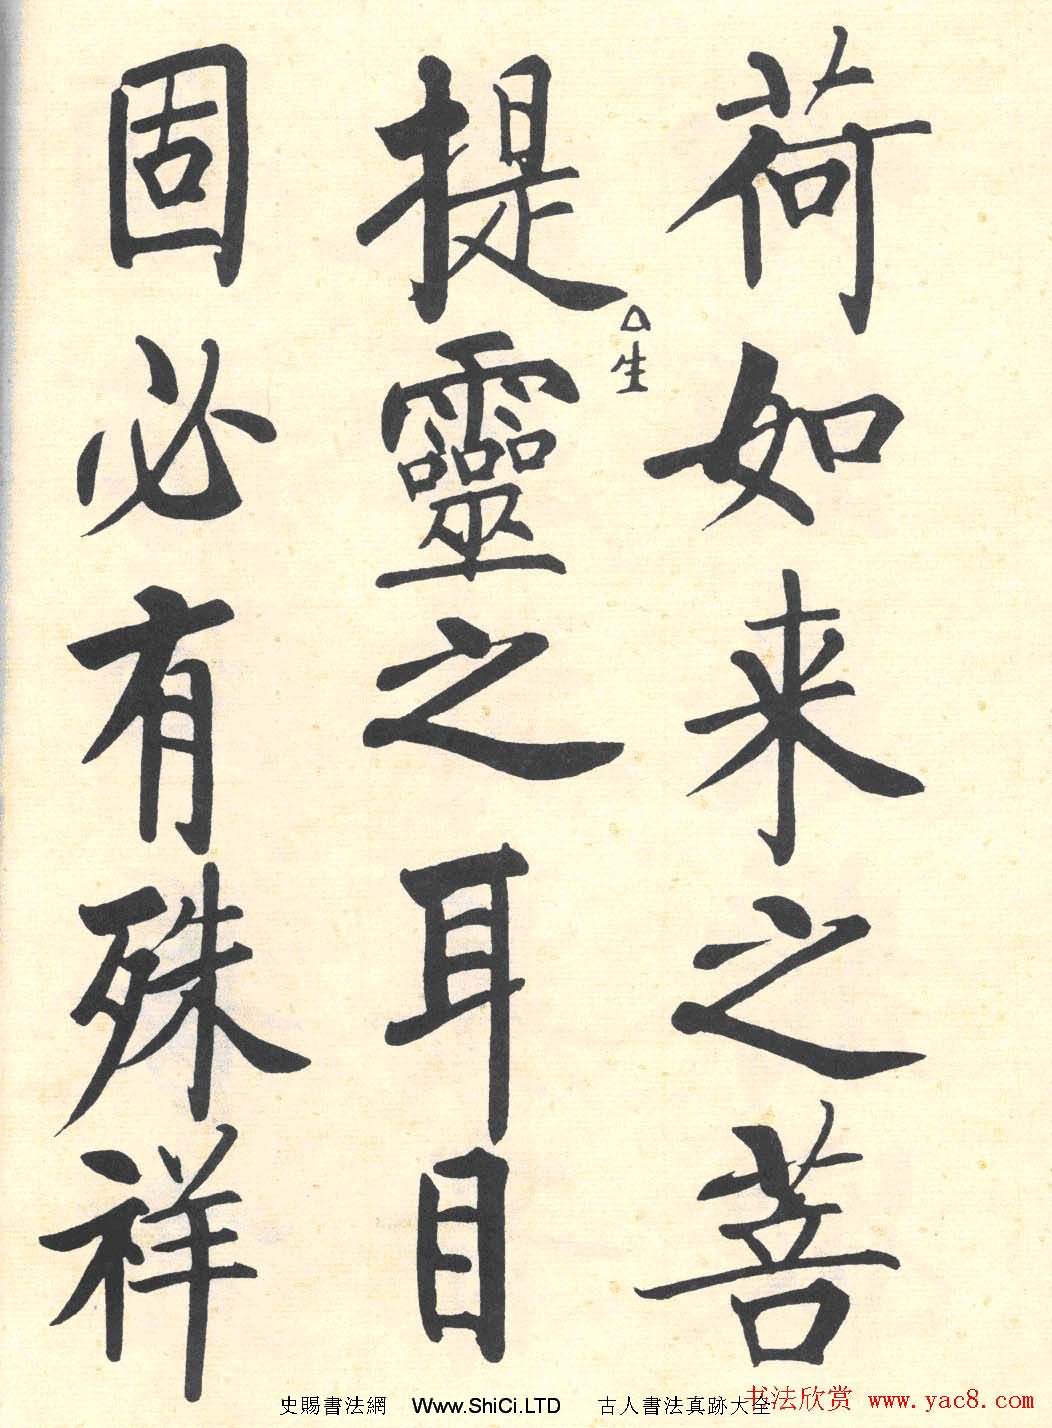 荷如来之菩
提靈之耳目
生
固必有殊祥
史賜書法網 Www.ShiCi.LTD 古人書法真跡大全
书法欣赏 www.yac8.com